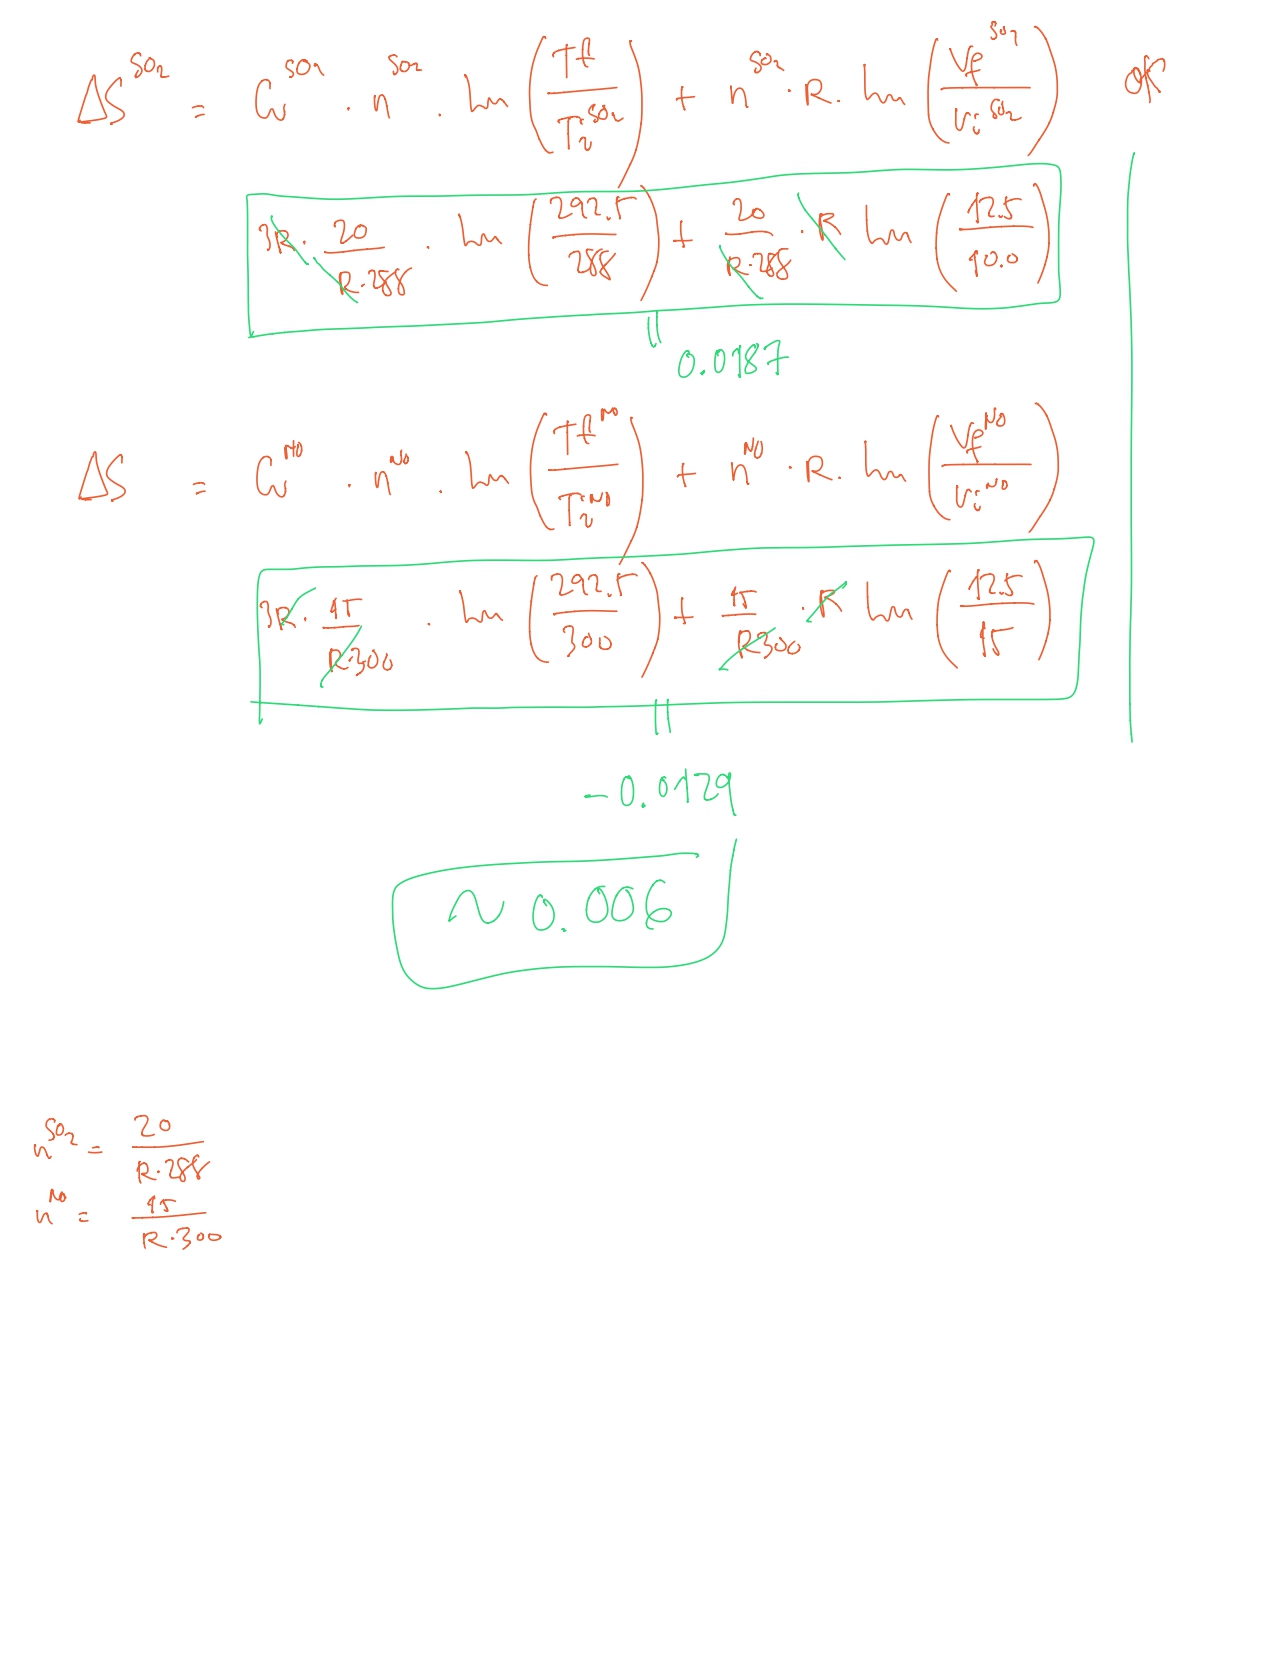 ΔS^SO₂ = Cv^SO₂ · n^SO₂ · ln (Tf / Ti^SO₂) + n^SO₂ · R · ln (Vf^SO₂ / Vi^SO₂)
3R · 20 / R·288 · ln (292.5 / 288) + 20 / R·288 · R ln (12.5 / 10.0)
||
0.0187
ΔS = Cv^NO · n^NO · ln (Tf^NO / Ti^NO) + n^NO · R · ln (Vf^NO / Vi^NO)
3R · 15 / R·300 · ln (292.5 / 300) + 15 / R300 · R ln (12.5 / 15)
||
-0.0129
~ 0.006
n^SO₂ = 20 / R·288
n^NO = 15 / R·300